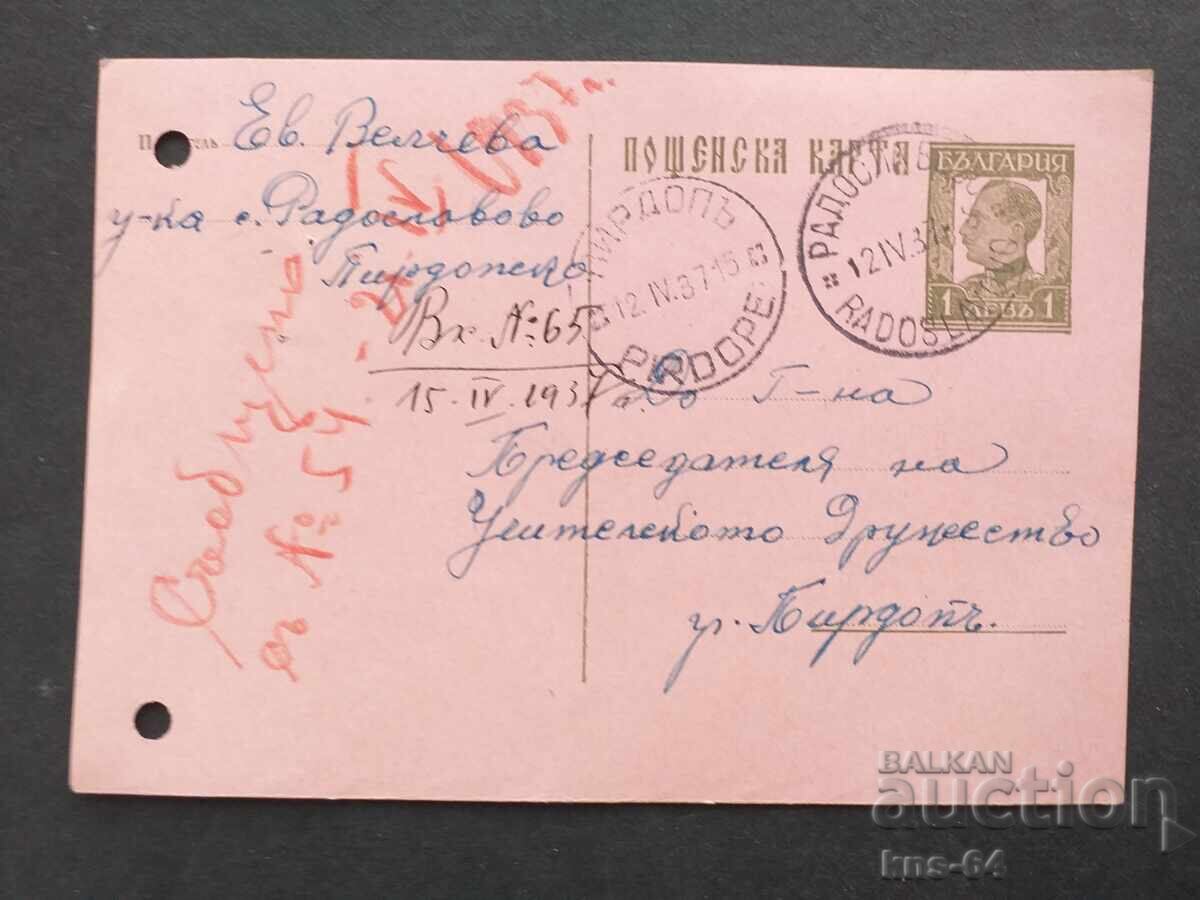 Ев. Велчева
у-ка с. Радославово
Пирдопско
Вх. № 65
15. IV. 1937 г.
Съобщено
съ № 54
IV 1937 г.
ПОЩЕНСКА КАРТА
БЪЛГАРИЯ
1 ЛЕВЪ 1
ПИРДОПЪ
12.IV.37-15
PIRDOPE
РАДОСЛАВ
12.IV.37
RADOSLA
До Г-на
Председателя на
Учителското Дружество
гр. Пирдопъ.
BALKAN
auction
kns-64